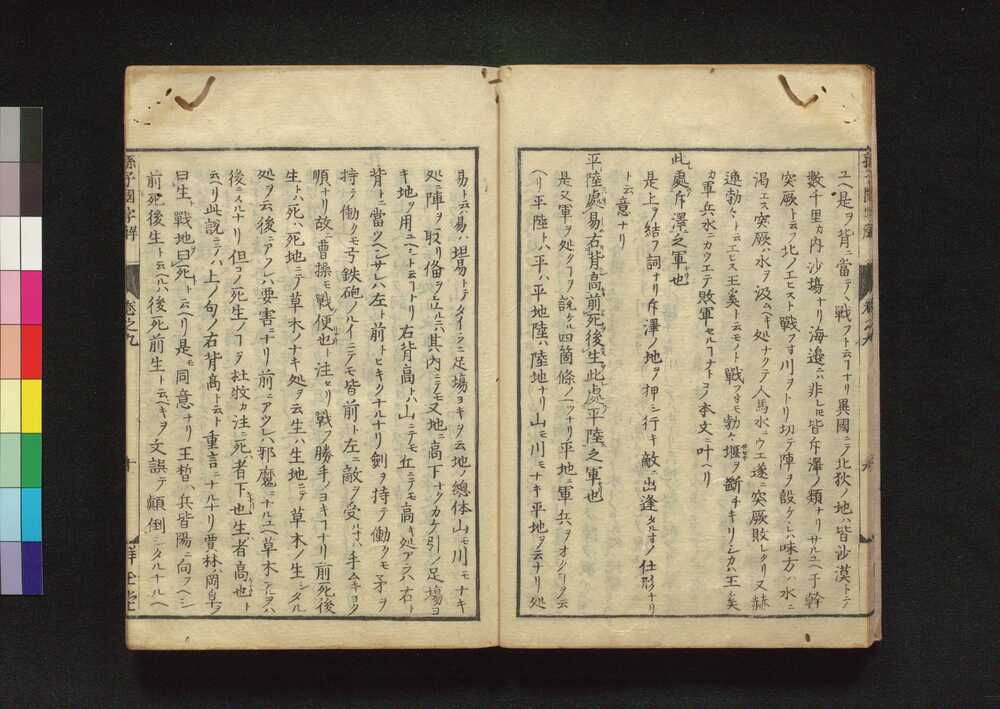 ユヘ是ヲ背ニ當テヽ戰フト云フナリ異國ニテ北狄ノ地ハ皆沙漠トテ
數千里カ内沙塲ナリ海邉ニハ非レ𪜈皆斥澤ノ類ナリサルユヘ于幹
突厥ト云フ北ノエヒスト戰フ寸川ヲトリ切テ陣ヲ設ケシハ味方ハ水ニ
渇エス突厥ハ水ヲ汲ムヘキ処ナクテ人馬水ニウエ遂ニ突厥敗レタリ又赫
連勃々ト云エヒス王奚ト云モノト戰フ寸モ勃々堰ヲ斷チキリシカハ王奚
カ軍兵水ニカウエテ敗軍セルフナトコノ本文ニ叶ヘリ
此處斥澤之軍也
是ハ上ヲ結フ詞ナリ斥澤ノ地ヲ押シ行キ敵ニ出逢タル寸ノ仕形ナリ
ト云意ナリ
平陸處易右背高前死後生此處平陸之軍也
是又軍ヲ処クフヲ説ケル四箇條ノ一ツナリ平地ニ軍兵ヲオクフヲ云
ヘリ平陸トハ平ハ平地陸ハ陸地ナリ山モ川モナキ平地ヲ云ナリ処
易トハ易ハ塲易トテタイラニ足塲ヨキヲ云地ノ總体山モ川モナキ
処ニ陣ヲ取リ備ヲ立ルニハ其内ニテモ又地ニ高下ナクカケ引ノ足塲ヨ
キ地ヲ用ユヘシト云フナリ右背高トハ山ニテモ丘ニテモ高キ処アラハ右ト
背トニ當ツヘシサレハ左ト前トヒキクナルナリ劍ヲ持テ働クモ茅ヲ
持テ働クモ弓鉄砲ノルイニテモ皆前ト左ニ敵ヲ受ル寸ハ手ムキヨク
順ナリ故ニ曹操モ戰便也ト注セリ戰フ勝手ノヨキフナリ前死後
生トハ死ハ死地ニテ草木ノナキ処ヲ云生ハ生地ニテ草木ノ生シタル
処ヲ云後ニアツレハ要害ニナリ前ニアツレハ邪魔ニナルユヘ草木アルヲハ
後ニスルナリ但コノ死生ノフヲ杜牧カ注ニ死者下也生者高也ト
云ヘリ此説ニテハ上ノ句ノ右背高ト云ト重言ニナルナリ賈林ハ岡阜ヲ
曰生戰地曰死ト云ヘリ是モ同意ナリ王晢ハ兵皆陽ニ向フヘシ
前死後生ト云ヘルハ後死前生ト云ヘキヲ文誤テ顛倒シタルナルヘ
孫子國字解
卷之九
十